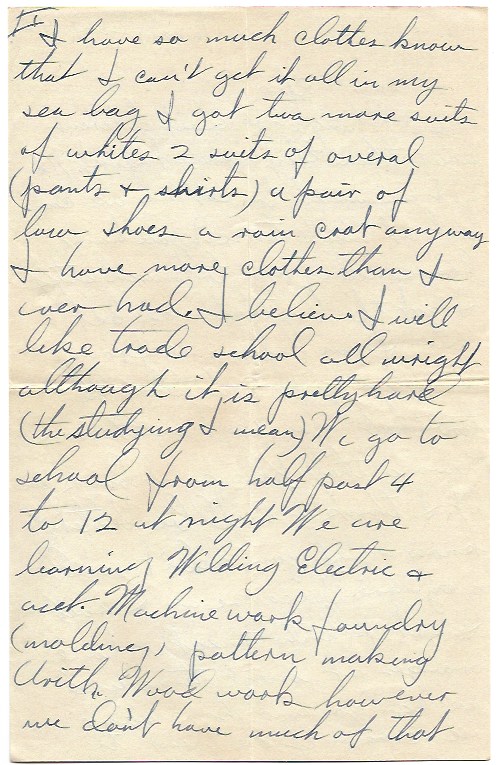 II
I have so much clothes know
that I can't get it all in my
sea bag I got two more suits
of whites 2 suits of overal
(pants & shirts) a pair of
low shoes a rain coat anyway
I have more clothes than I
ever had. I believe I will
like trade school all wright
although it is pretty hard
(the studying I mean) We go to
school from half past 4
to 12 at night We are
learning Wilding Electric &
acet. Machine work foundry
(molding) pattern making
Arith. Wood work however
we don't have much of that